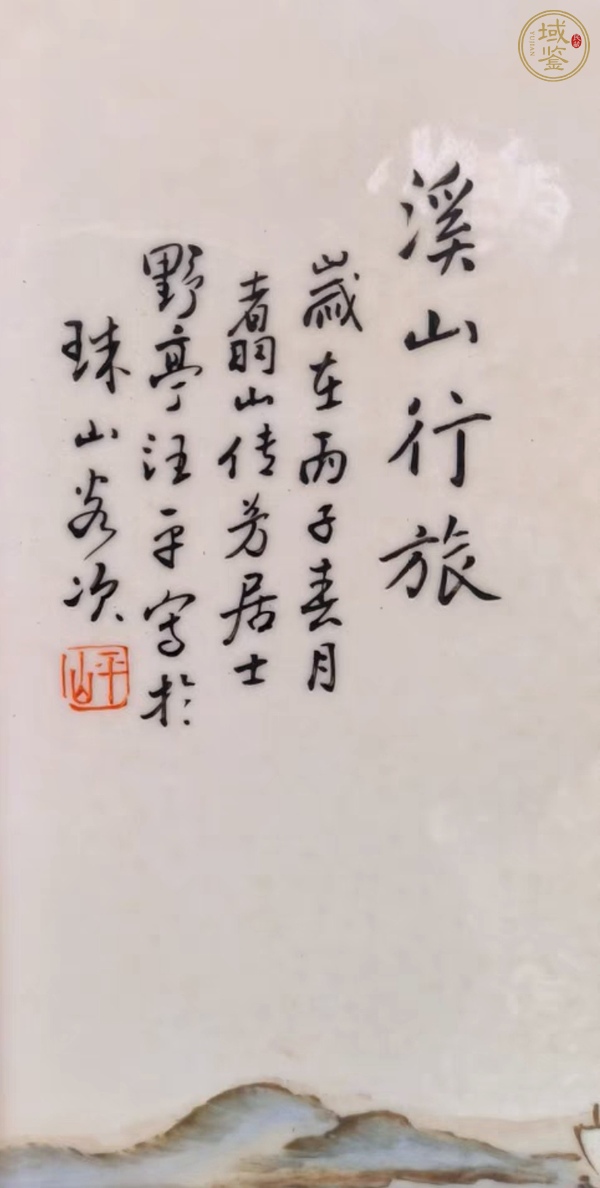 溪山行旅
歲在丙子春月
翥山传芳居士
野亭汪平寫於
珠山客次
域鉴